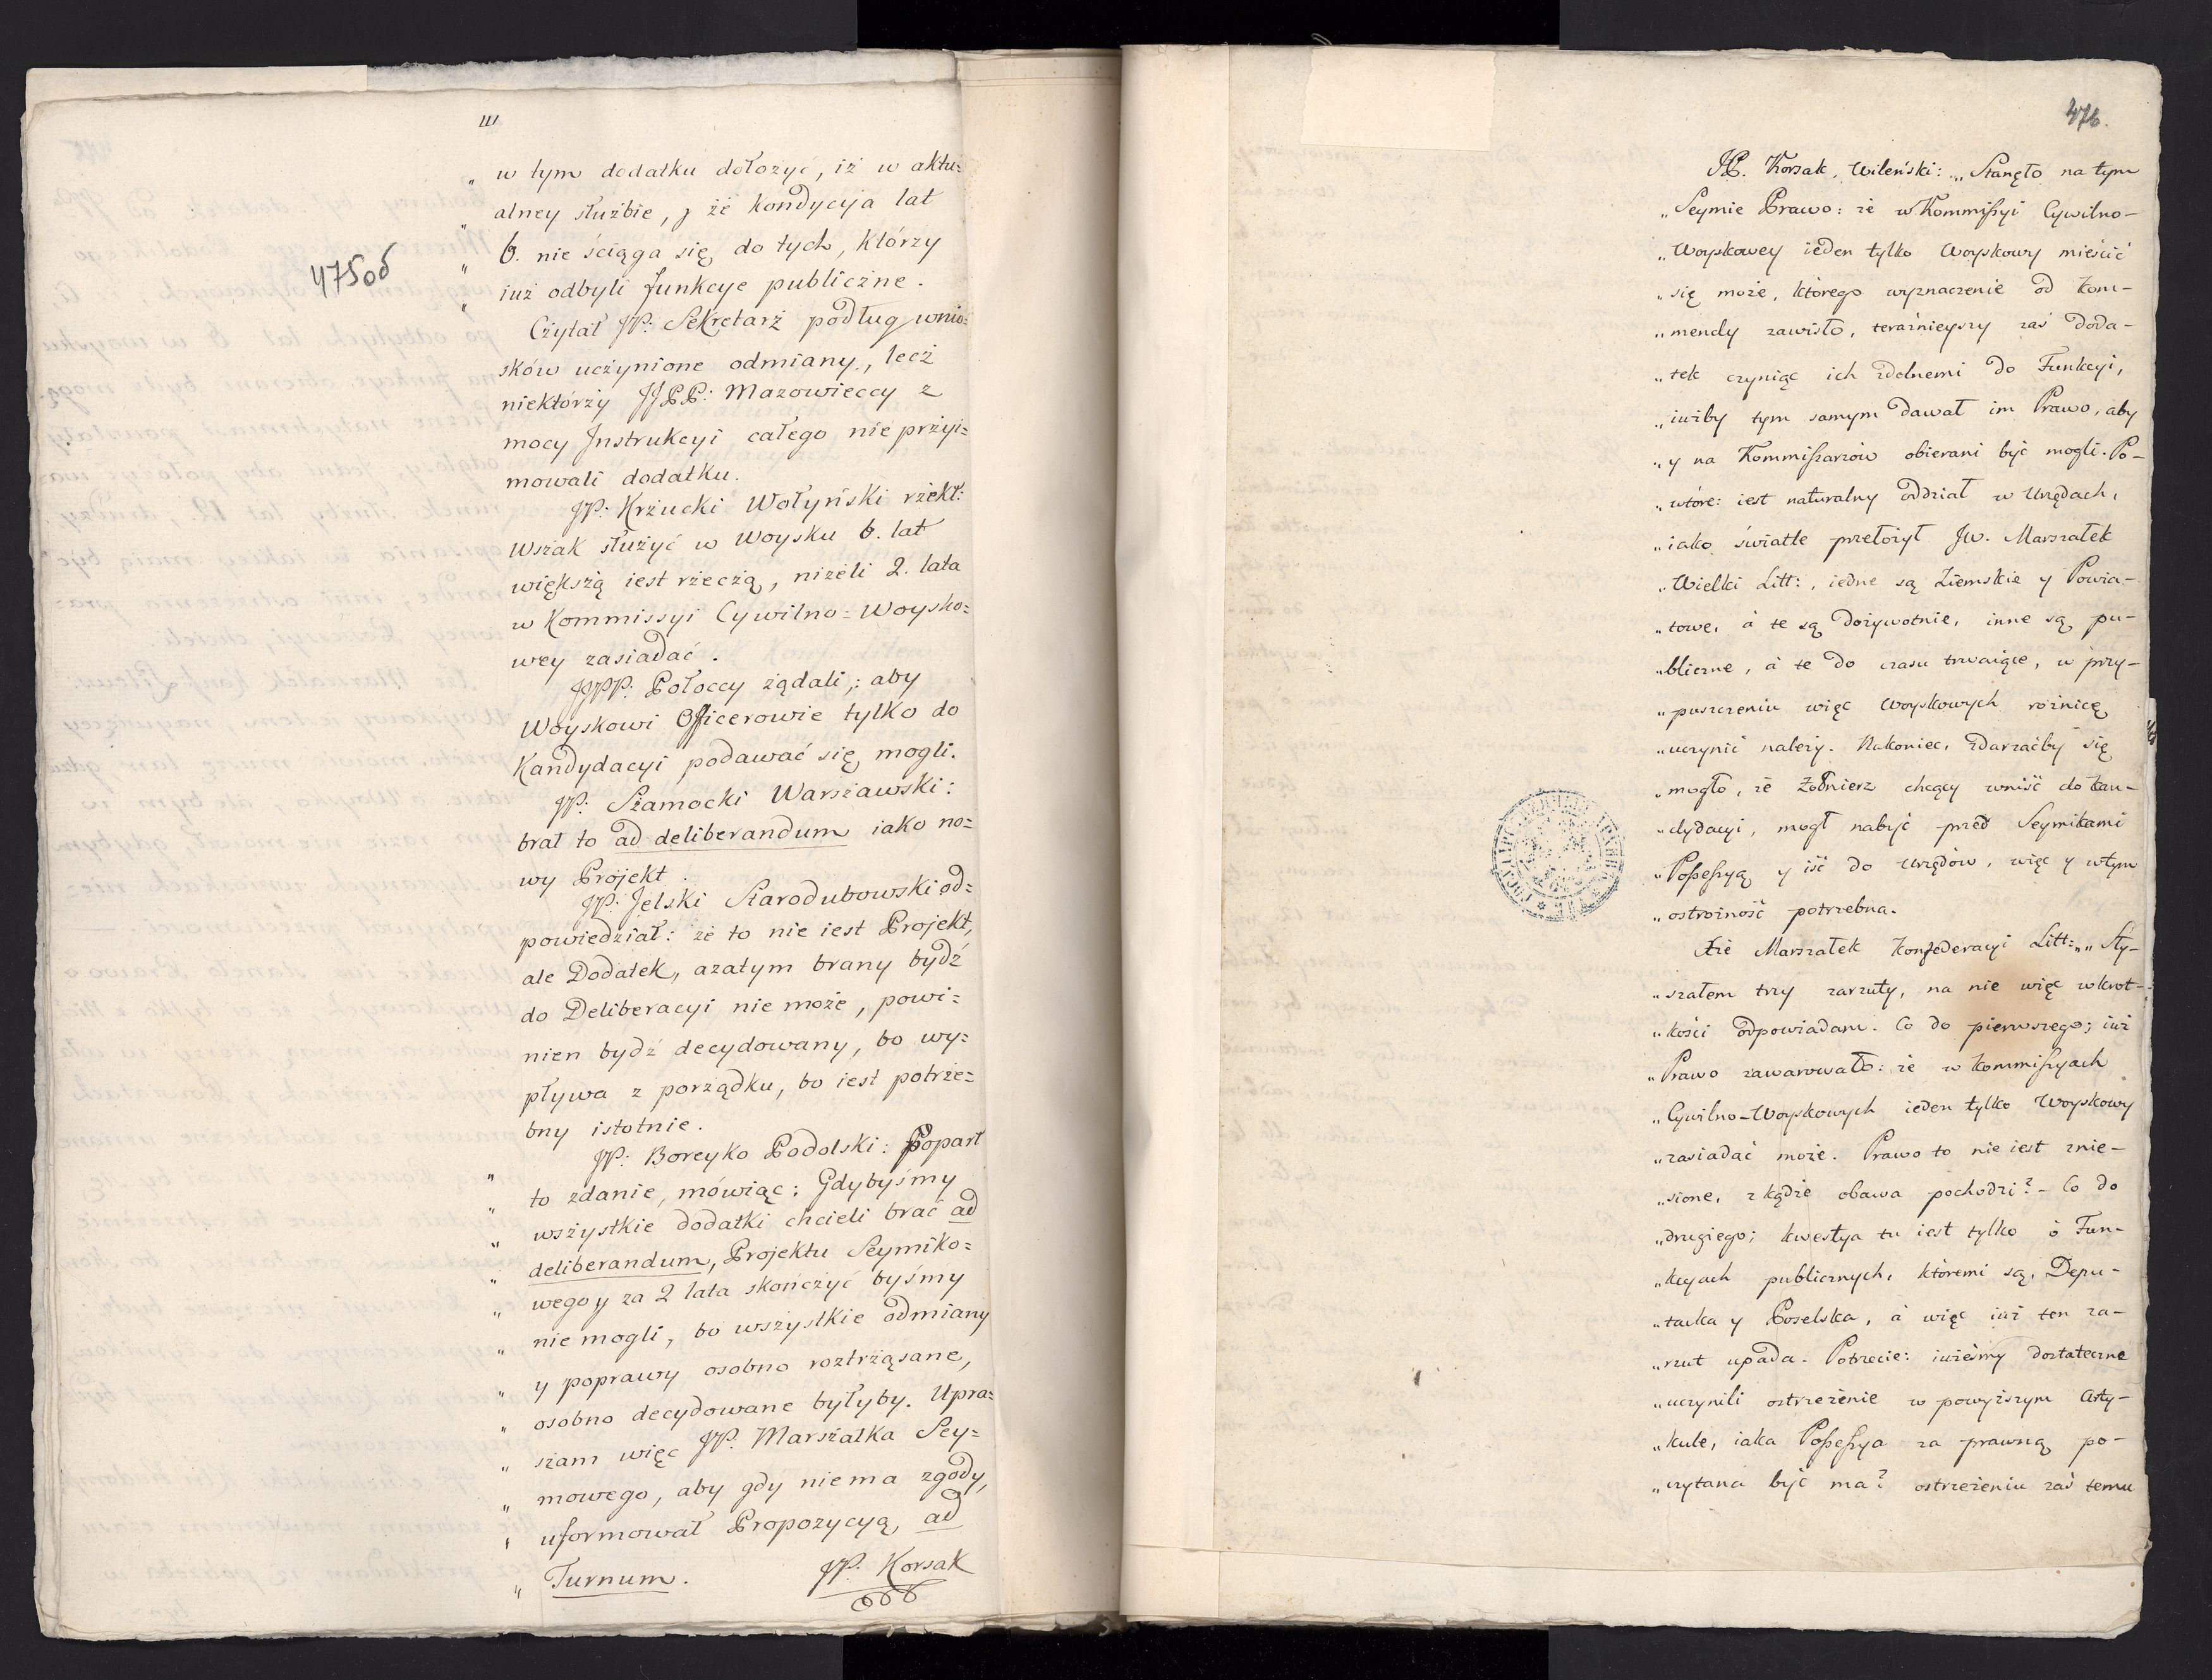 "' 
„ w tym dodatku dołożyć, iż w aktu=
„ alney służbie, y że Kondycyja lat
„ 6. nie ściąga się do tych, którzy
„ iuż odbyli funkcye publiczne.
475об
Czytał JP: Sekretarz podług wnio=
sków uczynione odmiany, lecz
niektórzy JJPP: Mazowieccy z
mocy Jnstrukcyi całego nie przyi=
mowali dodatku.
JP: Krzucki Wołyński rzekł:
Wszak służyć w Woysku 6. lat
większą iest rzeczą, niżeli 2. lata
w Kommissyi Cywilno=Woysko=
wey zasiadać.
JJPP: Połoccy żądali,: aby
Woyskowi Officerowie tylko do
Kandydacyi podawać się mogli.
JP: Szamocki Warszawski:
brał to ad deliberandum iako no=
wy Projekt.
JP: Jelski Starodubowski od=
powiedział: że to nie iest Projekt,
ale Dodatek, azatym brany bydź
do Deliberacyi nie może, powi=
nien bydź decydowany, bo wy=
pływa z porządku, bo iest potrze=
bny istotnie.
JP: Boreyko Podolski: Poparł
„ to zdanie, mówiąc: Gdybyśmy
„ wszystkie dodatki chcieli brać ad
„ deliberandum, Projektu Seymiko=
„ wego y za 2 lata skończyć byśmy
„ nie mogli, bo wszystkie odmiany
„ y poprawy osobno roztrząsane,
„ osobno decydowane byłyby. Upra=
„ szam więc JP. Marszałka Sey=
„ mowego, aby gdy niema zgody,
„ uformował Propozycyą ad
„ Turnum.
JP: Korsak
476.
JP. Korsak, Wileński: „Stanęło na tym
„Seymie Prawo: że w Kommißyi Cywilno-
„Woyskowey ieden tylko Woyskowy mieścić
„się może, którego wyznaczenie od Kom-
„mendy zawisło, teraźnieyszy zaś Doda-
„tek czyniąc ich zdolnemi do Funkcyi,
„iużby tym samym dawał im Prawo, aby
„y na Kommißarzów obierani być mogli. Po-
„wtóre: iest naturalny oddział w Urzędach,
„iako światle przełożył Jw. Marszałek
„Wielki Litt:, iedne są Ziemskie y Powia-
„towe, á te są dożywotnie, inne są pu-
„bliczne, á te do czasu trwaiące, w przy-
„puszczeniu więc Woyskowych różnicę
„uczynić należy. Nakoniec, zdarzaćby się
„mogło, że Żołnierz chcący wniść do Kan-
„dydacyi, mógł nabyć przed Seymikami
„Poßeßyą y iść do Urzędów, więc y w tym
„ostrożność potrzebna.
Xże Marszałek Konfederacyi Litt: „Sły-
„szałem trzy zarzuty, na nie więc w krot-
„kości odpowiadam. Co do pierwszego; iuż
„Prawo zawarowało: że w Kommißyach
„Cywilno-Woyskowych ieden tylko Woyskowy
„zasiadać może. Prawo to nie iest znie-
„sione, zkądże obawa pochodzi? - Co do
„drugiego; kwestya tu iest tylko ó Fun-
„kcyach publicznych, któremi są, Depu-
„tacka y Poselska, á więc iuż ten za-
„rzut upada. Potrzecie: iużeśmy dostateczne
„uczynili ostrzeżenie w powyższym Arty-
„kule, iaka Poßeßya za prawną po-
„czytana być ma? ostrzeżeniu zaś temu